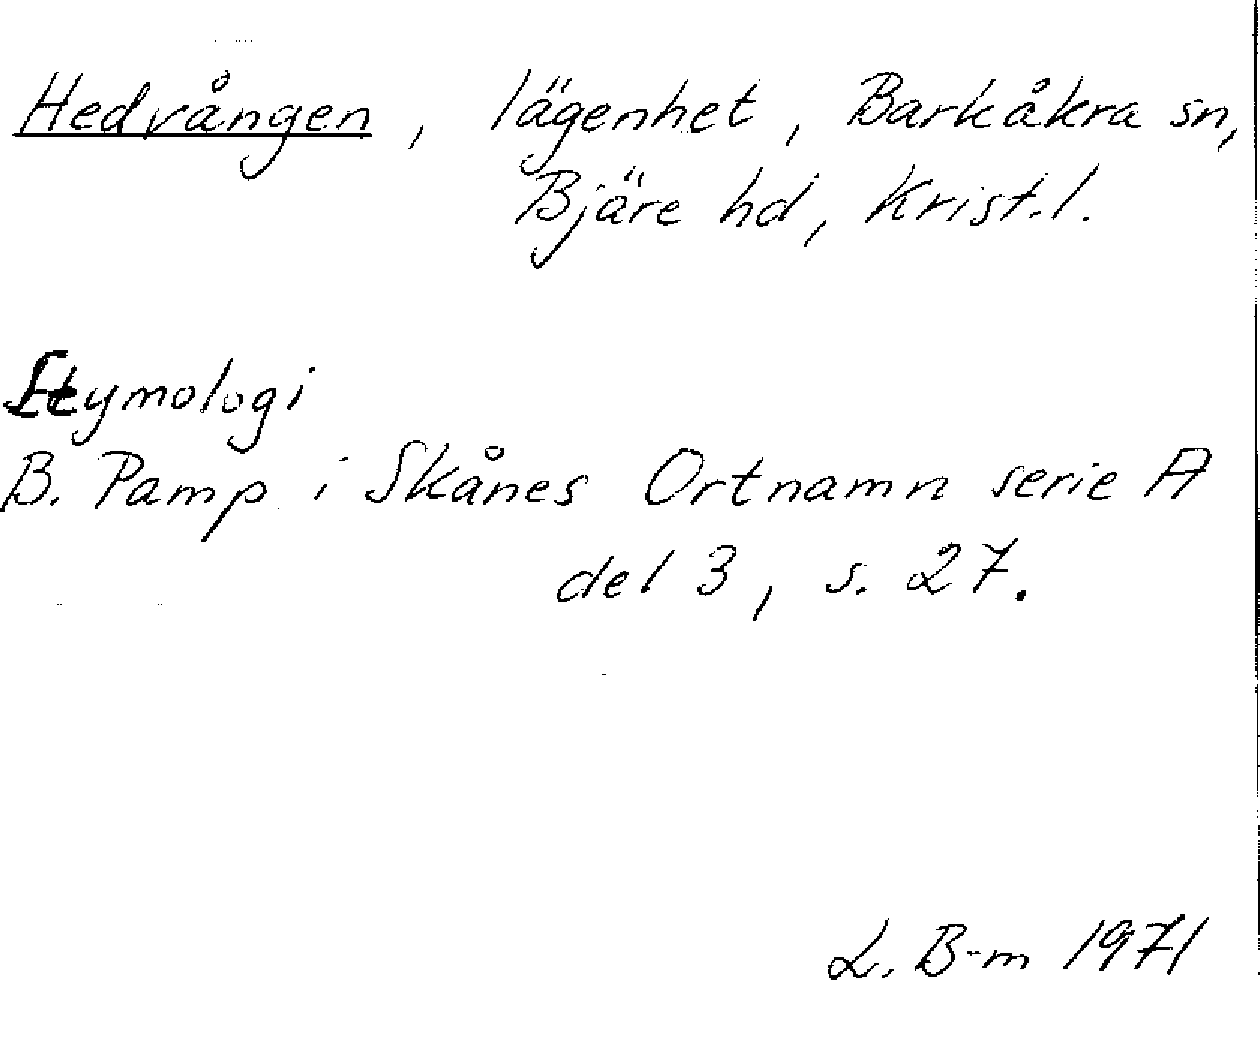 Hedvången, lägenhet, Barkåkra sn,
Bjäre hd, Krist.l.
Etymologi
B. Pamp i Skånes Ortnamn serie A
del 3, s. 27.
L. B-m 1971